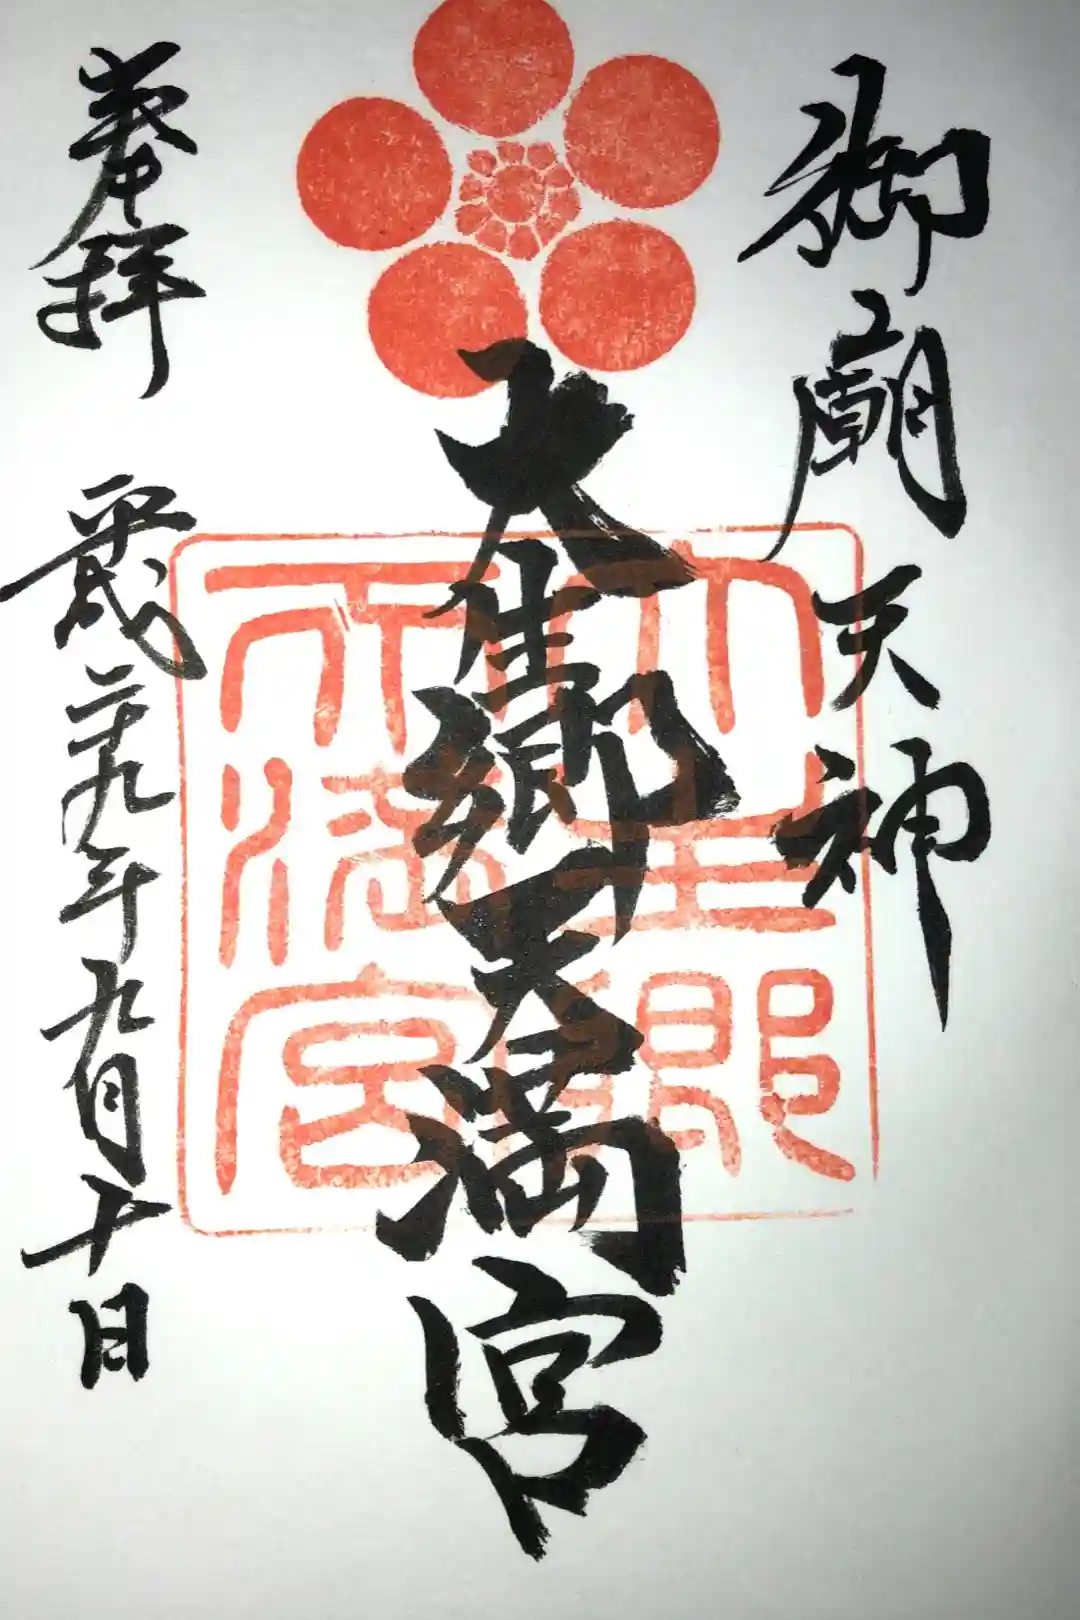 御廟天神
大生郷天満宮
大生郷
天満宮
奉拝 平成二十九年九月十日